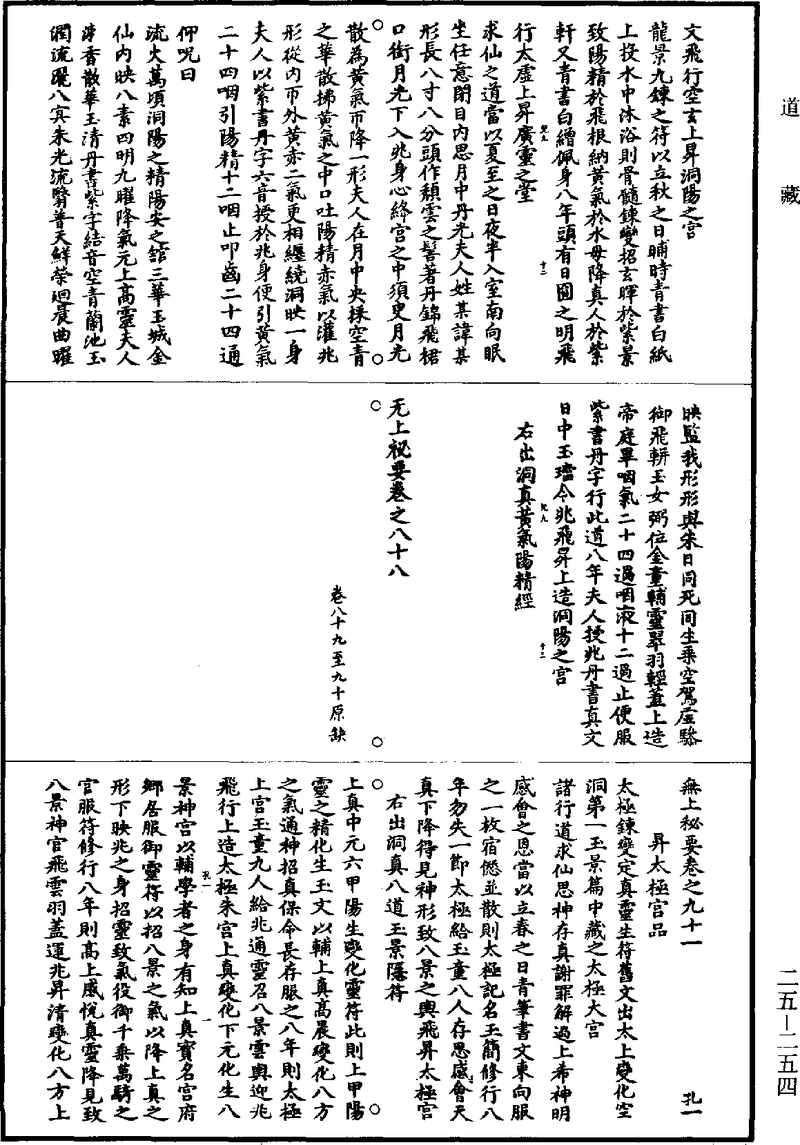 道藏
文飛行空玄上昇洞陽之宮
龍景九鍊之符以立秋之日晡時青書白紙
上投水中沐浴則骨髓鍊變招玄暉於紫景
致陽精於飛根納黃氣於水母降真人於紫
軒又青書白繒佩身八年頭有日圓之明飛
行太虛上昇廣靈之堂
求仙之道當以夏至之日夜半入室南向眠
坐任意閉目內思月中丹光夫人姓某諱某
形長八寸八分頭作頹雲之髻著丹錦飛裙
口銜月光下入兆身心絳宮之中須臾月光
散為黃氣帀降一形夫人在月中央採空青
之華散拂黃氣之中口吐陽精赤氣以灌兆
形從內帀外黃赤二氣更相纏繞洞映一身
夫人以紫書丹字六音授於兆身便引黃氣
二十四咽引陽精十二咽止叩齒二十四通
仰呪曰
流火萬頃洞陽之精陽安之館三華玉城金
仙內映八素四明九曜降氣元上高靈夫人
淳香散華玉清丹書紫字結音空青蘭池玉
澗流曜八㝠朱光流翳普天鮮榮迴晨曲曜
映監我形形與朱日同死同生乘空駕虛驂
御飛輧玉女弼位金童輔靈翠羽輕蓋上造
帝庭畢咽氣二十四過咽液十二過止便服
紫書丹字行此道八年夫人授兆丹書真文
日中玉璫令兆飛昇上造洞陽之宮
右出洞真黃氣陽精經
无上祕要卷之八十八
卷八十九至九十原缺
無上秘要卷之九十一
孔一
昇太極宮品
太極鍊變定真靈生符舊文出太上變化空
洞第一玉景篇中藏之太極大宮
諸行道求仙思神存真謝罪解過上希神明
感會之恩當以立春之日青筆書文東向服
之一枚宿愆並散則太極記名玉簡修行八
年勿失一節太極給玉童八人存思感會天
真下降得見神形致八景之輿飛昇太極宮
右出洞真八道玉景隱符
上真中元六甲陽生變化靈符此則上甲陽
靈之精化生玉文以輔上真高晨變化八方
之氣通神招真保命長存服之八年則太極
上宮玉童九人給兆通靈召八景雲輿迎兆
飛行上造太極朱宮上真變化下元化生八
景神宮以輔學者之身有知上真寶名宮府
鄉居服御靈符以招八景之氣以降上真之
形下映兆之身招靈致氣役御千乘萬騎之
官服符修行八年則高上感悅真靈降見致
八景神官飛雲羽蓋運兆昇清變化八方上
二五—二五四